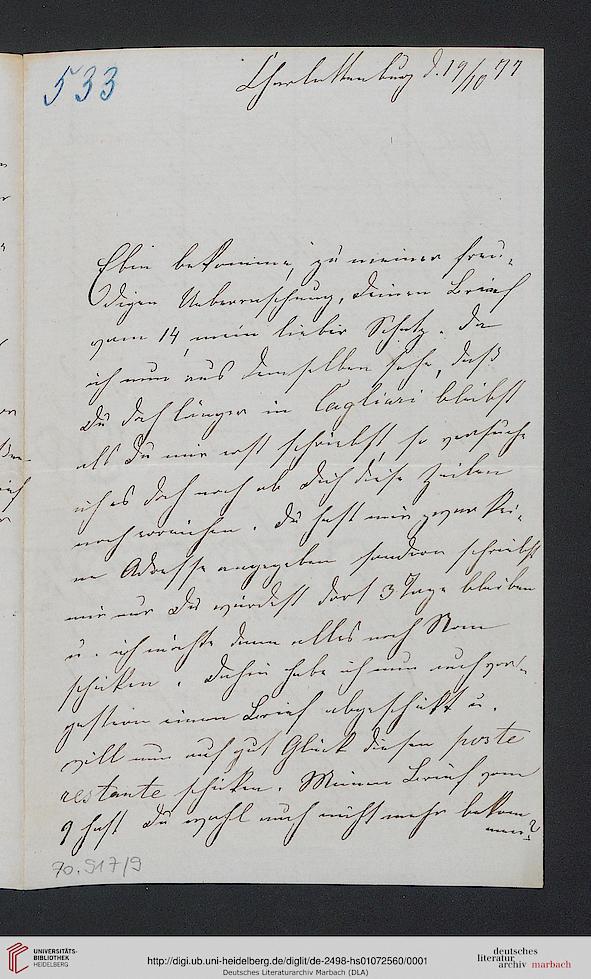 533
Charlottenburg d. 19/10 77
Eben bekomme, zu meiner freu-
digen Ueberraschung, Deinen Brief
vom 14, mein lieber Schatz. Da
ich nun aus demselben sehe, daß
Du doch länger in Cagliari bleibst
als Du mir erst schriebst, so versuche
ich es doch noch ob Dich diese Zeilen
noch erreichen. Du hast mir zwar kei-
ne Adresse angegeben sondern schriebst
mir nur Du würdest dort 3 Tage bleiben
u. ich möchte dann alles nach Rom
schicken. Dahin habe ich nun auch vor-
gestern einen Brief abgeschickt u.
will nun auf gut Glück diesen poste
restante schicken. Meinen Brief vom
9 hast Du wohl auch nicht mehr bekom
men?
90.917/9
UNIVERSITÄTS-
BIBLIOTHEK
HEIDELBERG
http://digi.ub.uni-heidelberg.de/diglit/de-2498-hs01072560/0001
Deutsches Literaturarchiv Marbach (DLA)
deutsches
literatur
archiv marbach